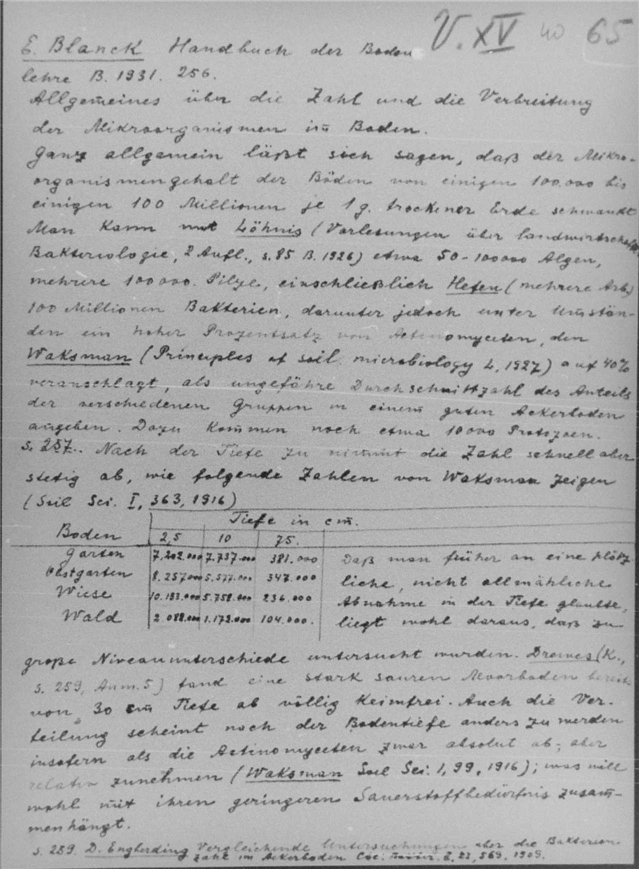 V. XV 40 65
E. Blanck Handbuch der Boden
lehre B. 1931. 256.
Allgemeines über die Zahl und die Verbreitung
der Mikroorganismen im Boden.
Ganz allgemein läßt sich sagen, daß der Mikro-
organismengehalt der Böden von einigen 100.000 bis
einigen 100 Millionen je 1 g. trockener Erde schwankt
Man kann mit Löhnis (Vorlesungen über landwirtschaftl.
Bakteriologie, 2 Aufl., s. 85 B. 1926) etwa 50-100000 Algen,
mehrere 100000. Pilze, einschließlich Hefen (mehrere Arb)
100 Millionen Bakterien, darunter jedoch unter Umstän-
den ein hoher Prozentsatz von Actinomyceten, den
Waksman (Principles of soil microbiology L, 1927) auf 40%
veranschlagt, als ungefähre Durchschnittzahl des Anteils
der verschiedenen Gruppen in einem guten Ackerboden
angeben. Dazu kommen noch etwa 10000 Protozoen.
s. 257. Nach der Tiefe zu nimmt die Zahl schnell aber
stetig ab, wie folgende Zahlen von Waksman zeigen
(Soil Sci. I, 363, 1916)
Tiefe in cm.
Boden 2,5 10 75.
Garten 7.202.000 7.737.000 381.000 Daß man früher an eine plötz
Obstgarten 8.257.000 5.577.000 347.000 liche, nicht allmähliche
Wiese 10.193.000 5.758.000 236.000 Abnahme in der Tiefe glaubte,
Wald 2.088.000 1.173.000 104.000. liegt wohl daraus, daß zu
große Niveauunterschiede untersucht wurden. Drewes (K.,
s. 259, Anm. 5) fand eine stark sauren Moorboden bereits
von 30 cm Tiefe ab völlig Keimfrei. Auch die Ver-
teilung scheint nach der Bodentiefe anders zu werden
insofern als die Actinomyceten zwar absolut ab, aber
relativ zunehmen (Waksman Soil Sci. 1, 99, 1916); was will
wohl mit ihren geringeren Sauerstoffbedürfnis zusam-
menhängt.
s. 259. D. Engberding Vergleichende Untersuchungen über die Bakterien
zahl im Ackerboden 2, 23, 569, 1909.